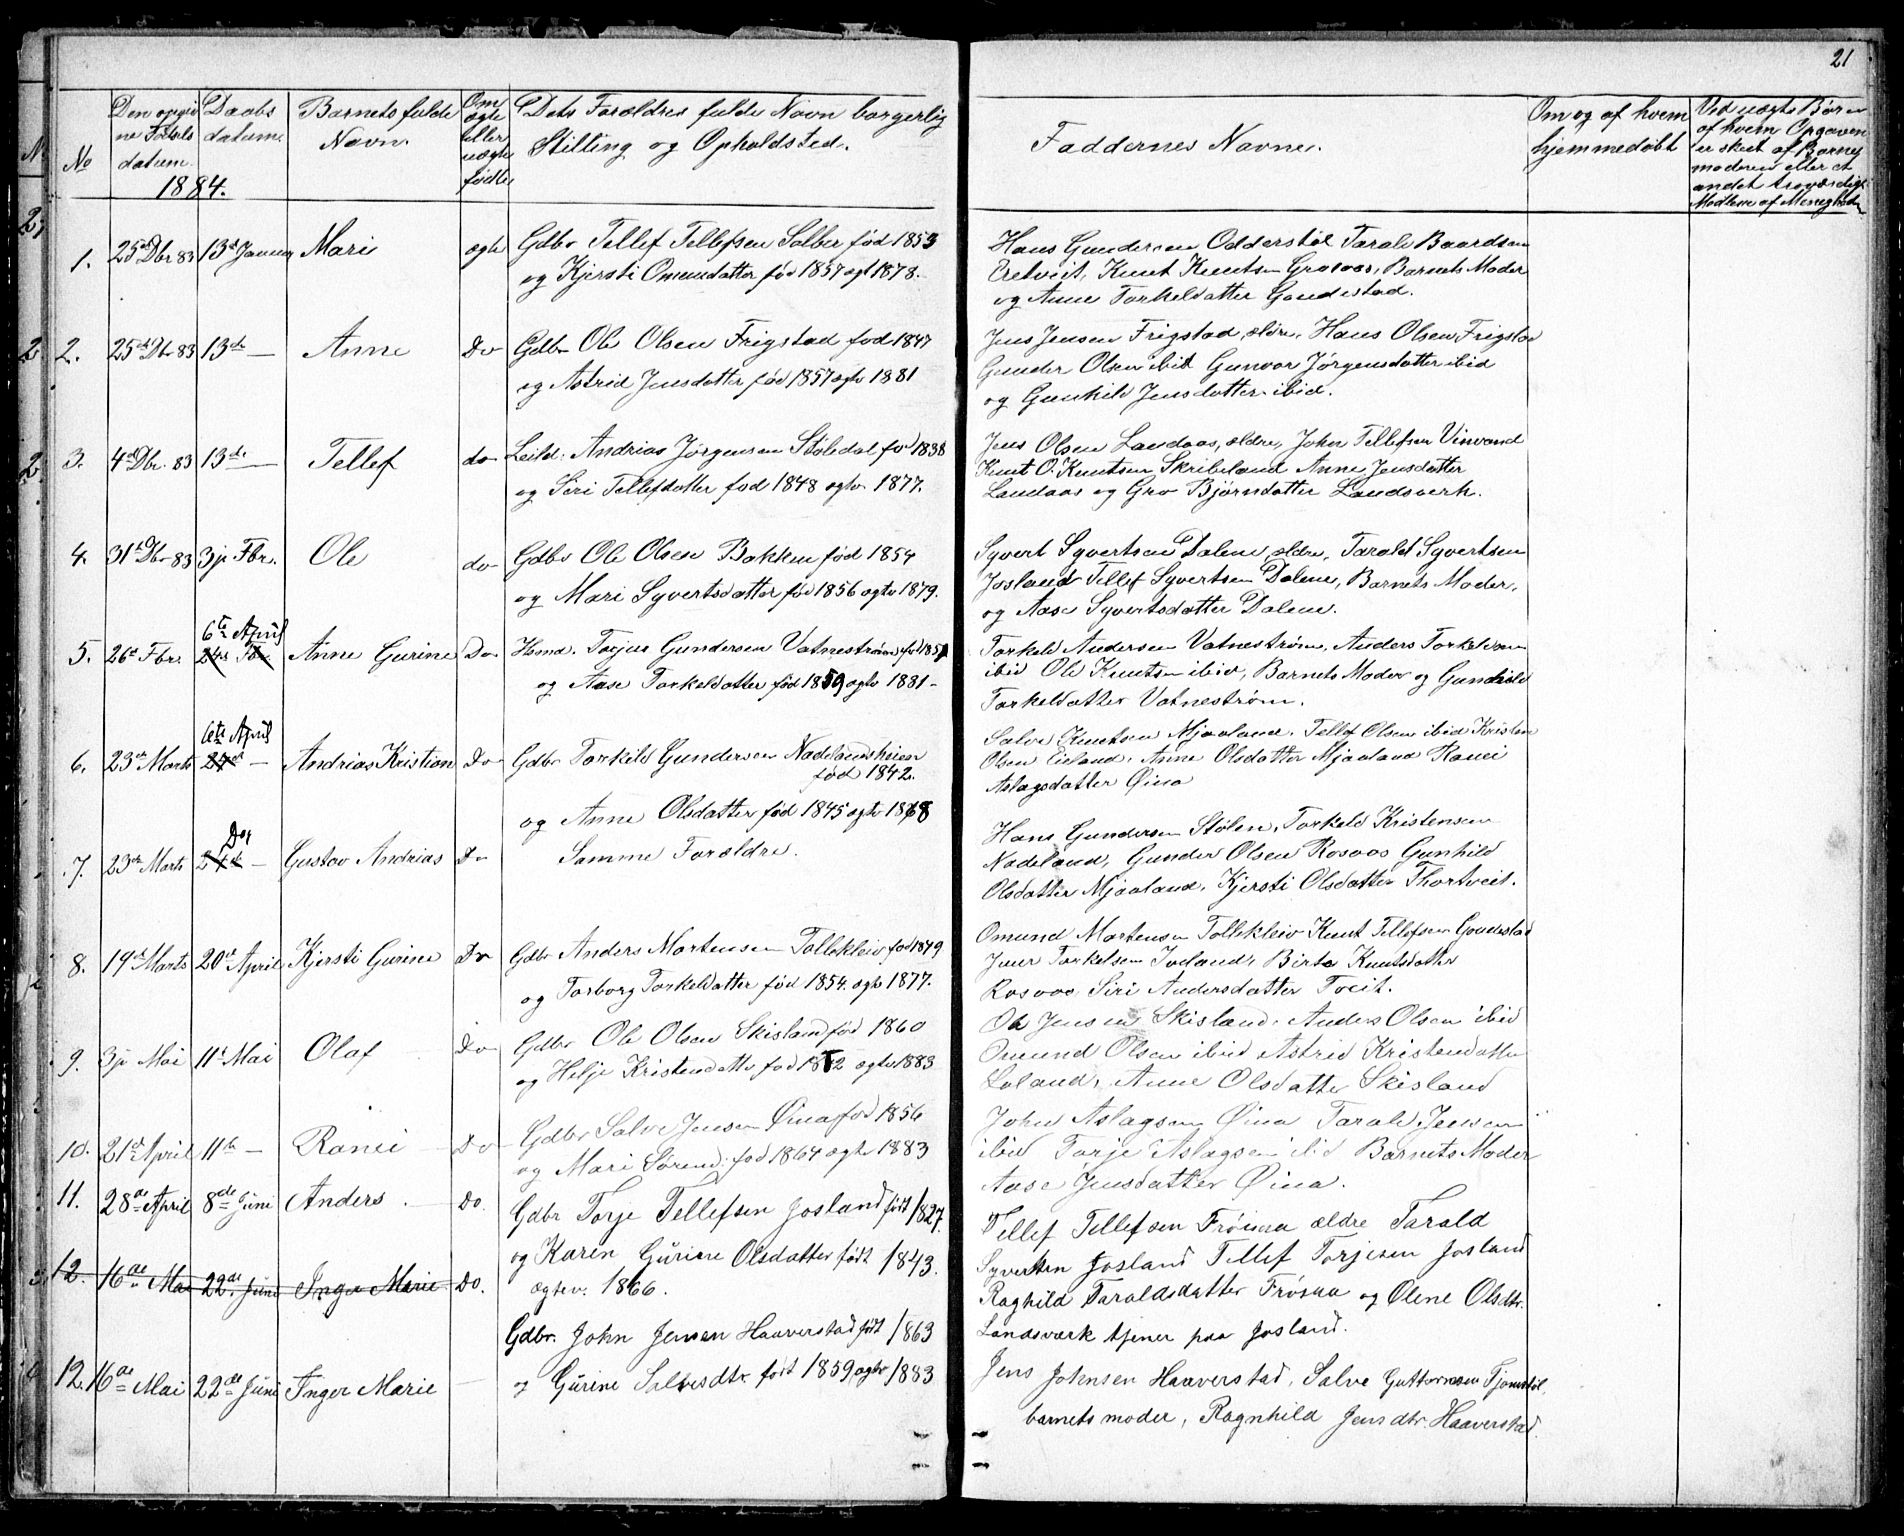 21
No
Den opgivne Fødselsdatum
Daabsdatum
Barnets fulde Navn.
Om ægte eller uægte født
Dets Forældres fulde Navn borgerlig Stilling og Opholdsted.
Faddernes Navne.
Om og af hvem hjemmedøbt
Ved uægte Børn af hvem Opgaven er skeet af Barnemoderen eller et andet troværdigt Medlem af Menigheden
1884.
1. 25de Dbr 83 13de Januar Mari ægte Gdbr Tellef Tellefsen Salber fød 1853
og Kjersti Omundatter fød 1857 ægt 1878.
Hans Gundersen Odderstøl Tarald Baardsen
Eretveit, Knut Knutsen Grosaas, Barnets Moder
og Anne Torkeldatter Goudestad.
2. 25de Dbr 83 13de — Anne Do Gdbr Ole Olsen Frigstad fød 1847
og Astrid Jensdatter fød 1857 ægtv 1881
Jens Jensen Frigstad, ældre, Hans Olsen Frigstad
Gunder Olsen ibid Gunvor Jørgensdatter ibid
og Gunhild Jensdatter ibid.
3. 4de Dbr. 83 13de — Tellef do Leild. Andrias Jørgensen Støledal fød 1838
og Siri Tellefdatter fød 1848 ægtv 1877.
Jens Olsen Landaas, ældre, John Tellefsen Vinvand
Knut O. Knutsen Skribeland Anne Jensdatter
Landaas og Gro Bjørndatter Landsverk.
4. 31te Dbr 83 3je Fbr. Ole do Gdbr Ole Olsen Bakken fød 1854
og Mari Syvertsdatter fød 1856 ægtv 1879.
Syvert Syvertsen Dalene, ældre, Tarald Syvertsen
Josland Tellef Syvertsen Dalene, Barnets Moder,
og Aase Syvertsdatter Dalene.
6te April
5. 26de Fbr. 24de Fbr Anne Gurine Do Hsmd. Torjus Gundersen Vatnestrøm fød 1857
og Aase Torkeldatter fød 1859 ægtv 1881 -
Torkeld Andersen Vatnestrøm, Anders Torkeldsen
ibid Ole Knutsen ibid, Barnets Moder og Gunhild
Torkeldatter Vatnestrøm.
6te April
6. 23de Marts 24de — Andrias Kristian Do Gdbr Torkeld Gundersen Nadelandsheien
fød 1842.
og Anne Olsdatter fød 1845 ægtv 1868
Salve Knutsen Mjaaland, Tellef Olsen ibid Kristen
Olsen Eieland, Anne Olsdatter Mjaaland Ranei
Aslagsdatter Øina
Do
7. 23de Marts 24de — Gustav Andrias Do Samme Forældre.
Hans Gundersen Stølen, Torkeld Kristensen
Nadeland, Gunder Olsen Rosaas Gunhild
Olsdatter Mjaaland, Kjersti Olsdatter Thortveit.
8. 19de Marts 20de April Kjersti Gurine Do Gdbr Anders Mortensen Tollekleiv fød 1849
og Torborg Torkeldatter fød 1854. ægtv 1877.
Omund Mortensen Tollekleiv Knut Tellefsen Goudestad
Torkelsen Birte Knutsdatter
Rosaas Siri Andersdatter Tveit.
9. 3je Mai 11te Mai Olaf Do Gdbr Ole Olsen Skisland fød 1860
og Helje Kristendattr fød ægtv 1883
Ole Jensen Skisland, Anders Olsen ibid
Omund Olsen ibid Astrid Kristendatter
Loland, Anne Olsdatter Skisland
10. 21de April 11te — Ranei Do Gdbr Salve Jensen Øina fød 1856
og Mari Sørend. fød 1864 ægtv 1883
John Aslagsen Øina Tarald Jensen
ibid Torje Aslagsen ibid Barnets Moder
Aase Jensdatter Øina.
11. 28de April 8de Juni Anders. Do. Gdbr Torje Tellefsen Josland født 1827.
og Karen Gurine Olsdatter født 1843.
ægtev. 1866.
Tellef Tellefsen Frøisaa ældre Tarald
Syvertsen Josland Tellef Torjesen Josland
Raghild Taraldsdatter Frøsaa og Olene Olsdtr.
Landsværk tjener paa Josland.
12. 16de Mai 22de Juni Inger Marie Do.
Gdbr. John Jensen Haaverstad født 1863
12. 16de Mai 22de Juni Inger Marie — og Gurine Salvesdtr. født 1859 ægtv 1883
Jens Johnsen Haaverstad, Salve Guttormsen Tjomstøl,
barnets moder, Ragnhild Jensdtr. Haaverstad.